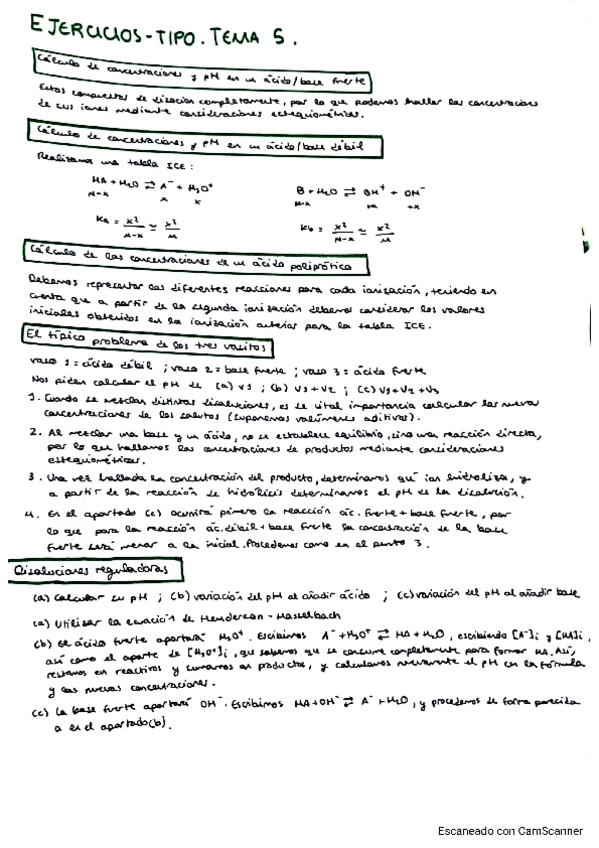 EJERCICIOS-TIPO. TEMA 5.
Cálculo de concentraciones y pH en un ácido/base fuerte
Estos compuestos se disocian completamente, por lo que podemos hallar las concentraciones
de sus iones mediante consideraciones estequiométricas.
Cálculo de concentraciones y pH en un ácido/base débil
Realizamos una tabla ICE:
HA + H2O ⇄ A⁻ + H3O⁺ B + H2O ⇄ BH⁺ + OH⁻
M-x x x M-x +x +x
Ka = x²/M-x ≃ x²/M Kb = x²/M-x ≃ x²/M
Cálculo de las concentraciones de un ácido poliprótico
Debemos representar las diferentes reacciones para cada ionización, teniendo en
cuenta que a partir de la segunda ionización debemos considerar los valores
iniciales obtenidos en la ionización anterior para la tabla ICE.
El típico problema de los tres vasitos
vaso 1 = ácido débil ; vaso 2 = base fuerte ; vaso 3 = ácido fuerte
Nos piden calcular el pH de (a) v1 ; (b) v1+v2 ; (c) v1+v2+v3
1. Cuando se mezclan distintas disoluciones, es de vital importancia calcular las nuevas
concentraciones de los solutos (suponemos volúmenes aditivos).
2. Al mezclar una base y un ácido, no se establece equilibrio, sino una reacción directa,
por lo que hallamos las concentraciones de productos mediante consideraciones
estequiométricas.
3. Una vez hallada la concentración del producto, determinamos qué ion hidroliza, y
a partir de la reacción de hidrólisis determinamos el pH de la disolución.
4. En el apartado (c) ocurrirá primero la reacción ác. fuerte + base fuerte, por
lo que para la reacción ác. débil + base fuerte la concentración de la base
fuerte será menor a la inicial. Procedemos como en el punto 3.
Disoluciones reguladoras
(a) Calcular su pH ; (b) variación del pH al añadir ácido ; (c) variación del pH al añadir base
(a) Utilizar la ecuación de Henderson - Hasselbach
(b) El ácido fuerte aportará H3O⁺. Escribimos A⁻ + H3O⁺ ⇄ HA + H2O, escribiendo [A⁻]i y [HA]i,
así como el aporte de [H3O⁺]i, que sabemos que se consume completamente para formar HA. Así,
restamos en reactivos y sumamos en productos, y calculamos nuevamente el pH con la fórmula
y las nuevas concentraciones.
(c) La base fuerte aportará OH⁻. Escribimos HA + OH⁻ ⇄ A⁻ + H2O, y procedemos de forma parecida
a en el apartado (b).
Escaneado con CamScanner